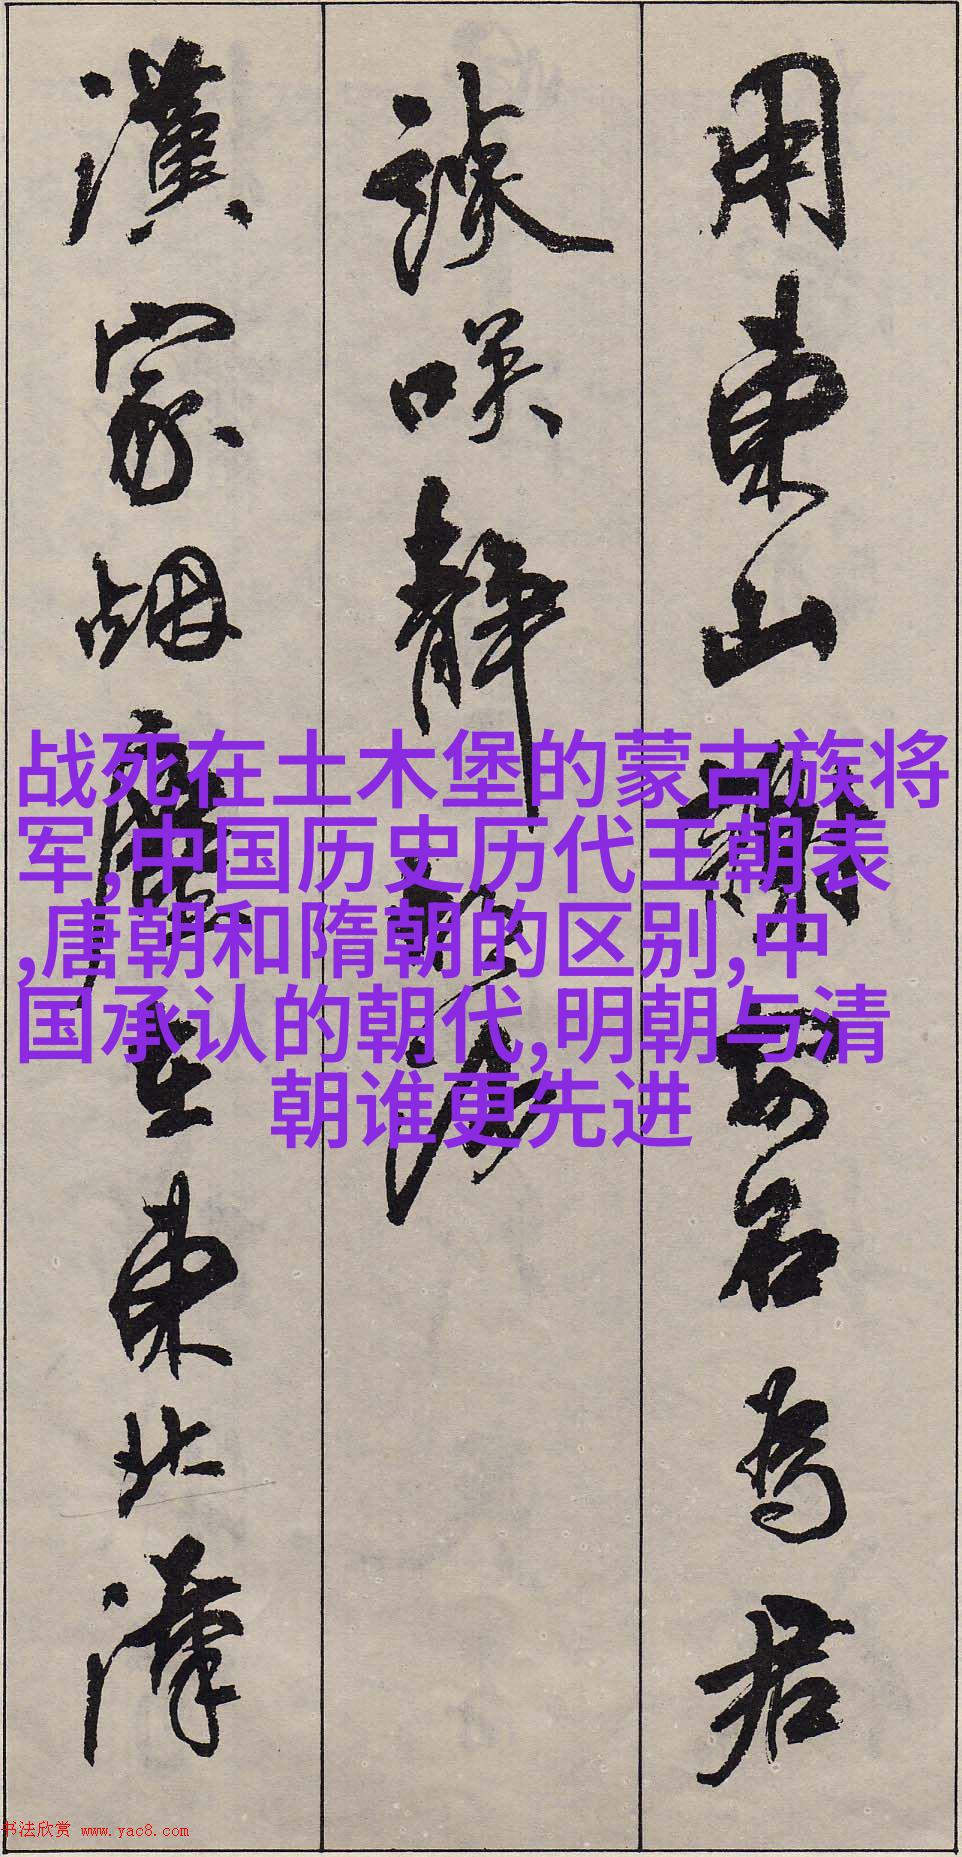 用東山謝安石为君
談咲靜胡沙
漢家烟塵在東北漢
战死在土木堡的蒙古族将
军,中国历史历代王朝表
,唐朝和隋朝的区别,中
国承认的朝代,明朝与清
朝谁更先进
书法欣赏 www.yac8.com